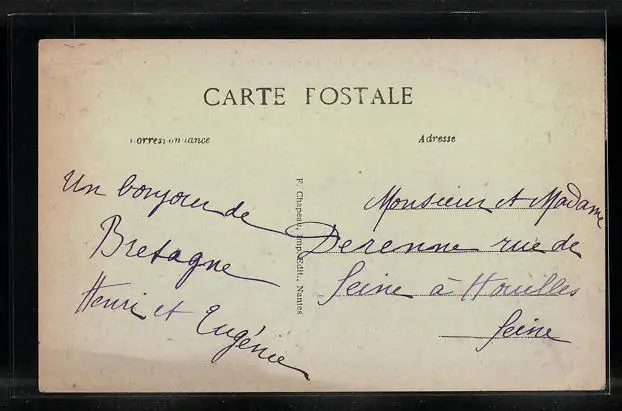 CARTE POSTALE
Correspondance
Adresse
Un bonjour de
Bretagne
Henri et Eugénie
F. Chapeau, Imp. Edit., Nantes
Monsieur et Madame
Derenne rue de
Seine à Houilles
Seine